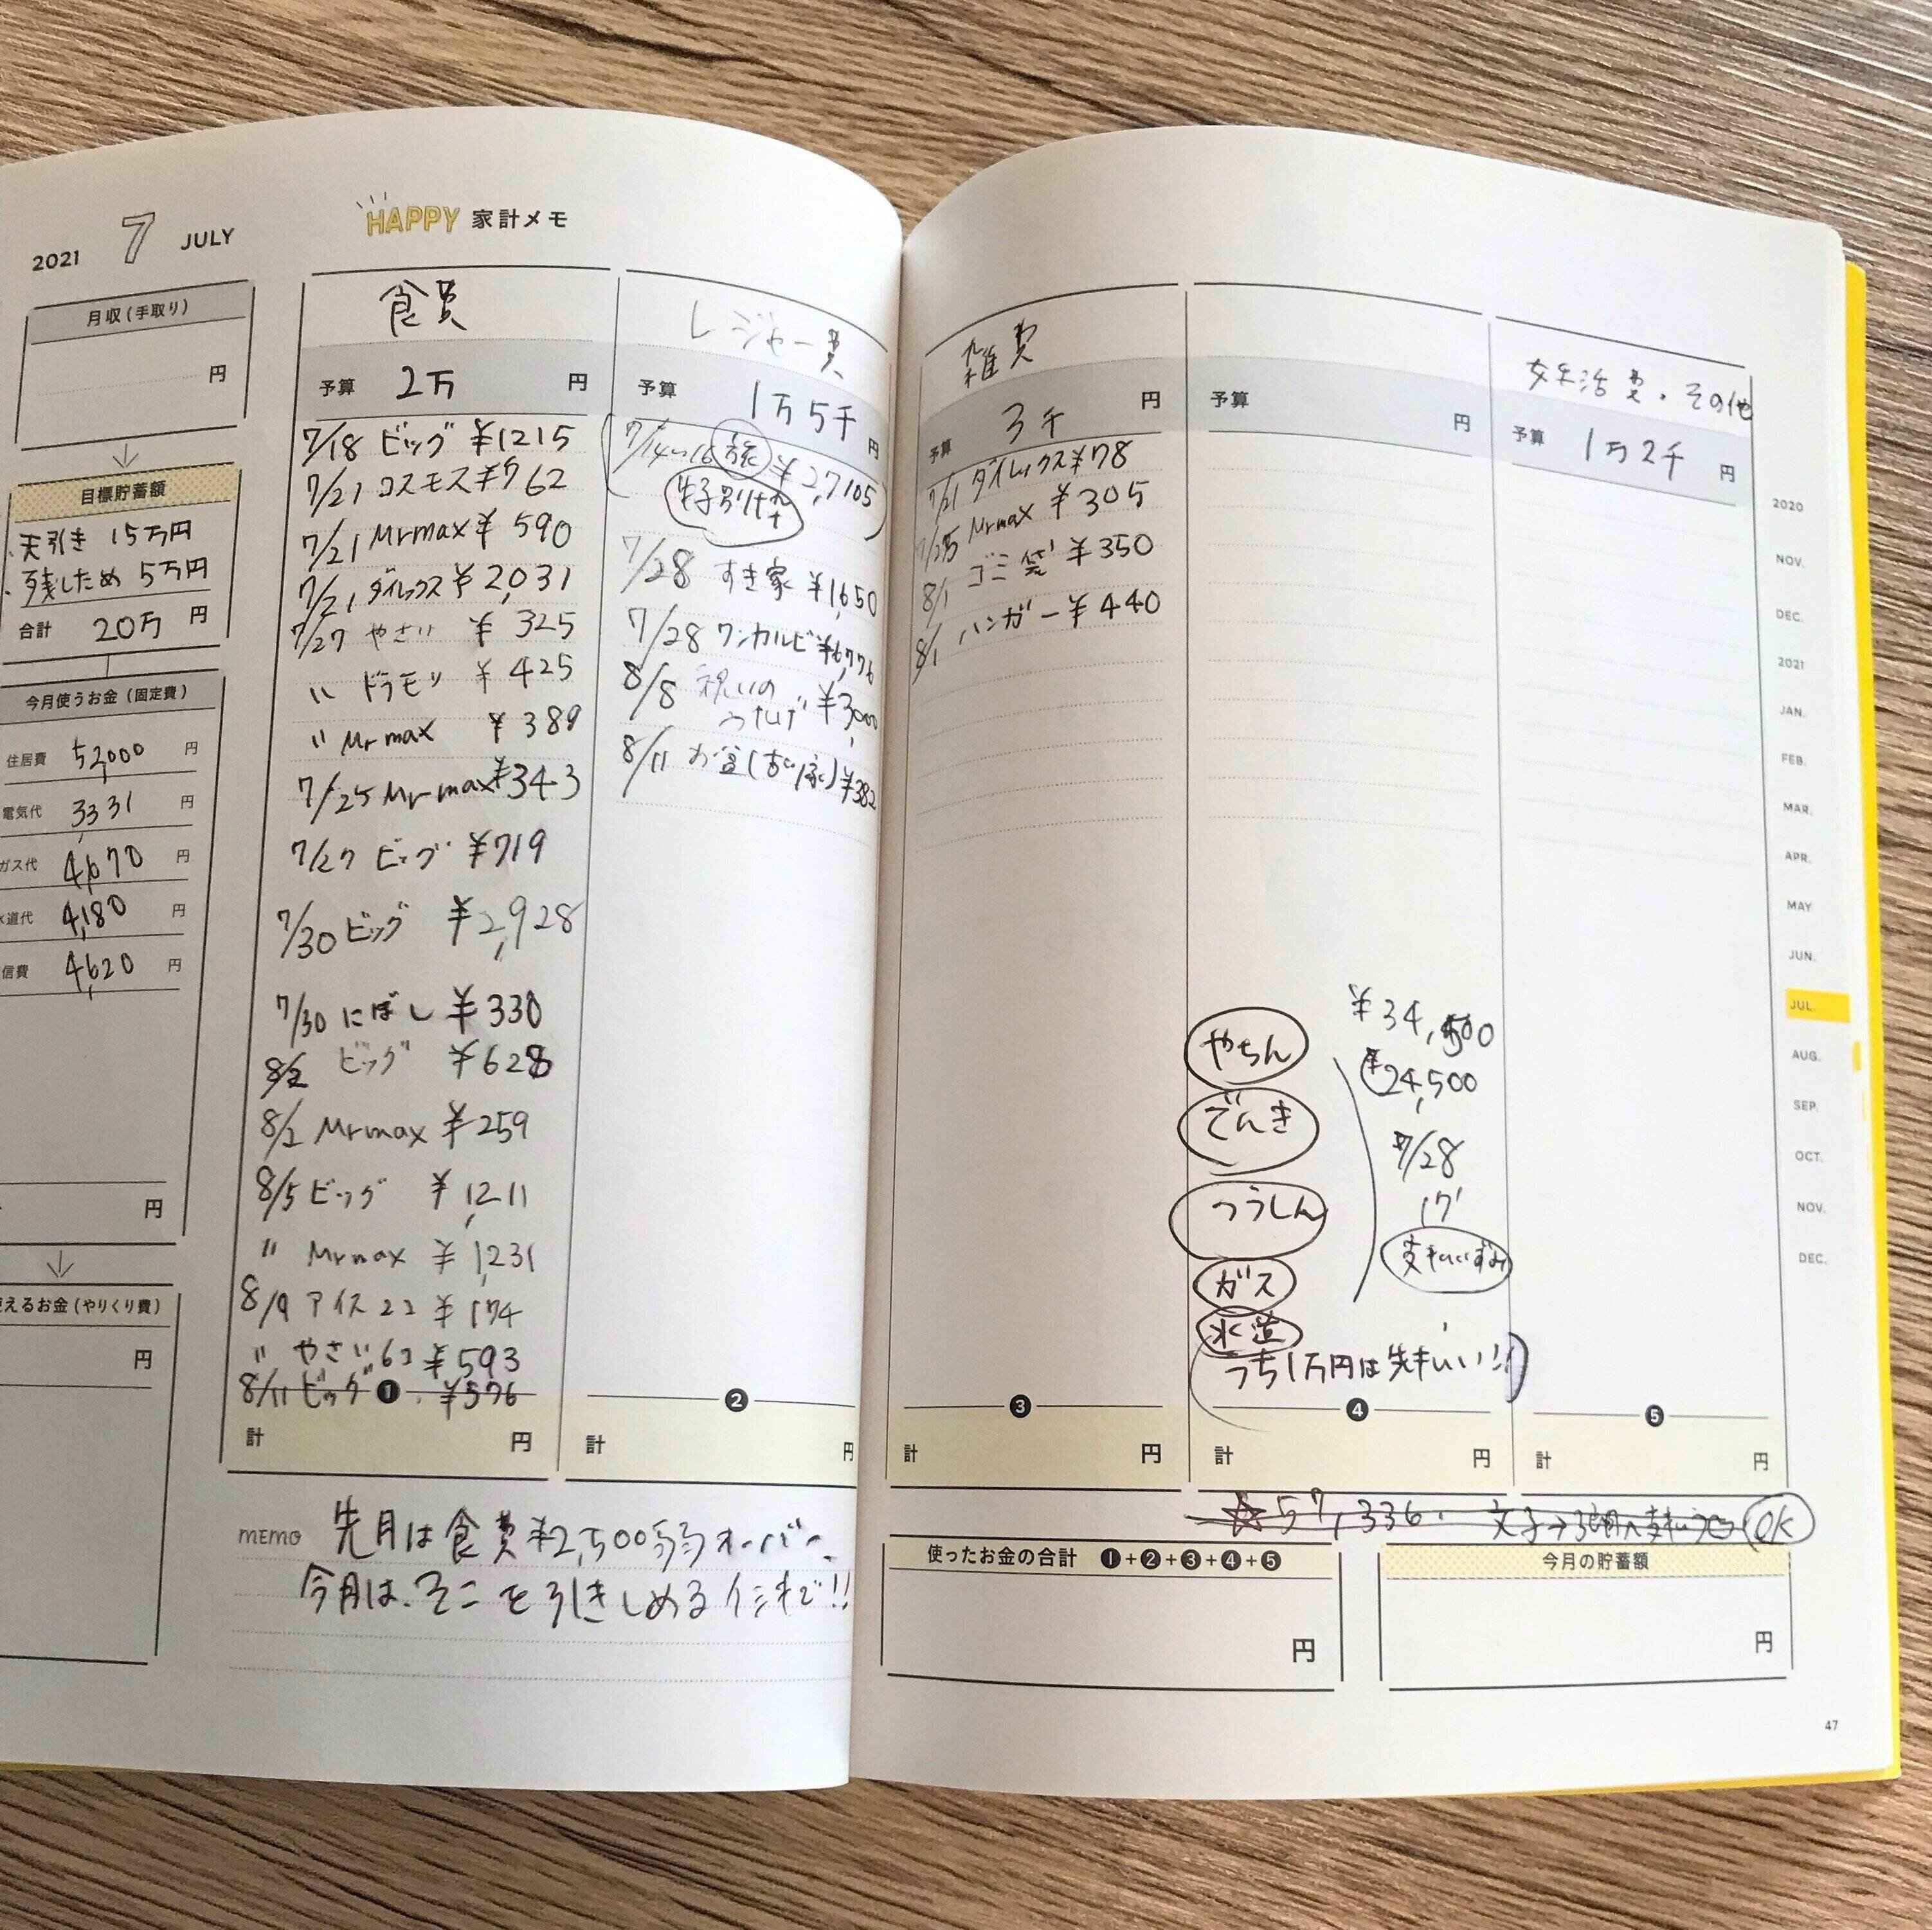 2021 7 JULY
HAPPY 家計メモ
月収(手取り)
円
目標貯蓄額
・天引き 15万円
・残しため 5万円
合計 20万 円
今月使うお金(固定費)
住居費 52,000 円
電気代 3,331 円
ガス代 4,670 円
道代 4,180 円
信費 4,620 円
円
えるお金(やりくり費)
円
食費
予算 2万 円
7/18 ビッグ ¥1215
7/21 コスモス ¥762
7/21 Mrmax ¥590
7/21 ダイレックス ¥2,031
7/27 やさい ¥325
〃 ドラモリ ¥425
〃 Mrmax ¥389
7/25 Mrmax ¥343
7/27 ビッグ ¥719
7/30 ビッグ ¥2,928
7/30 にぼし ¥330
8/2 ビッグ ¥628
8/2 Mrmax ¥259
8/5 ビッグ ¥1,211
〃 Mrmax ¥1,231
8/9 アイス22 ¥174
〃 やさい6コ ¥593
8/11 ビッグ ¥576
❶
計 円
レジャー費
予算 1万5千 円
7/14〜16 旅 ¥2,7105
特別枠
7/28 すき家 ¥1,650
7/28 ワンカルビ ¥6,776
8/8 祝いの
うたげ ¥3,000
8/11 お盆(古い家) ¥382
❷
計 円
MEMO 先月は食費¥2,500弱オーバー、
今月は、そこを引きしめるイミで!!
雑費
予算 3千 円
7/21 ダイレックス ¥78
7/25 Mrmax ¥305
8/1 ゴミ袋 ¥350
8/1 ハンガー ¥440
❸
計 円
予算 円
やちん
でんき
つうしん
ガス
水道
¥34,500
¥24,500
7/28
17'
支払いずみ
うち1万円は先払い!!
❹
計 円
交生活費・その他
予算 1万2千 円
❺
計 円
☆57,336.
OK
使ったお金の合計 ❶+❷+❸+❹+❺
円
今月の貯蓄額
円
2020
NOV.
DEC.
2021
JAN.
FEB.
MAR.
APR.
MAY
JUN.
JUL.
AUG.
SEP.
OCT.
NOV.
DEC.
47